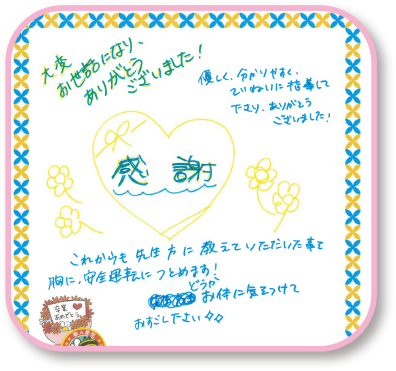 大変
お世話になり、
ありがとう
ございました!
優しく、分かりやすく、
ていねいに指導して
下さり、ありがとう
ございました!
感謝
これからも先生方に教えていただいた事を
胸に、安全運転につとめます!
どうか
お体に気をつけて
おすごし下さい
卒業
おめでとう